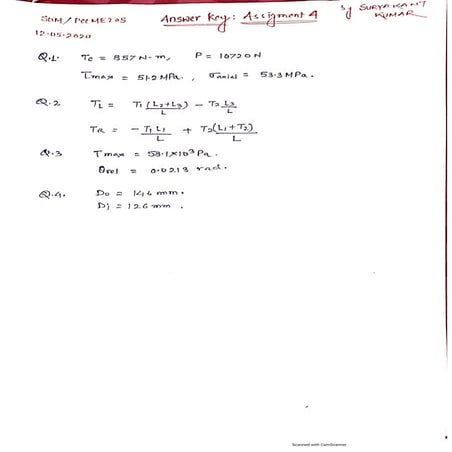 SOM/PCC ME205 Answer Key: Assigment 4 By SURYAKANT KUMAR
12-05-2020
Q.1. Tc = 857 N-m, P = 16720 N
τmax = 51.2 MPa, σaxial = 53.3 MPa.
Q.2 TL = T1(L2+L3)/L − T2L3/L
TR = −T1L1/L + T2(L1+T2)/L
Q.3 τmax = 53.1×10³ Pa.
θrel = 0.0213 rad.
Q.4. Do = 146 mm.
Di = 126 mm.
Scanned with CamScanner